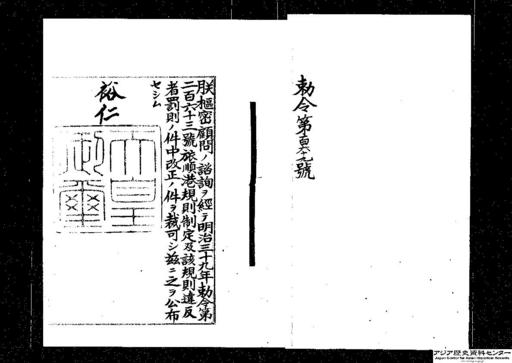 勅令第百六十九號
朕樞密顧問ノ諮詢ヲ經テ明治三十九年勅令第
二百六十三號旅順港規則制定及該規則違反
者罰則ノ件中改正ノ件ヲ裁可シ茲ニ之ヲ公布
セシム
裕仁
天皇御璽
アジア歴史資料センター
Japan Center for Asian Historical Records